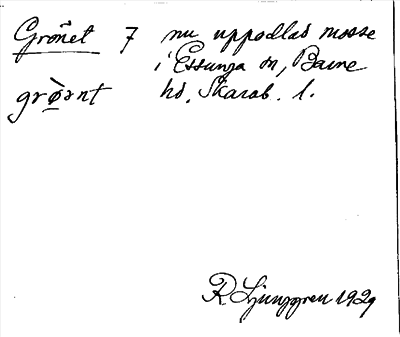 Grönet 7 nu uppodlad mosse
i Essunga sn, Barne
grø̀ənt hd. Skarab. l.
R Ljunggren 1929